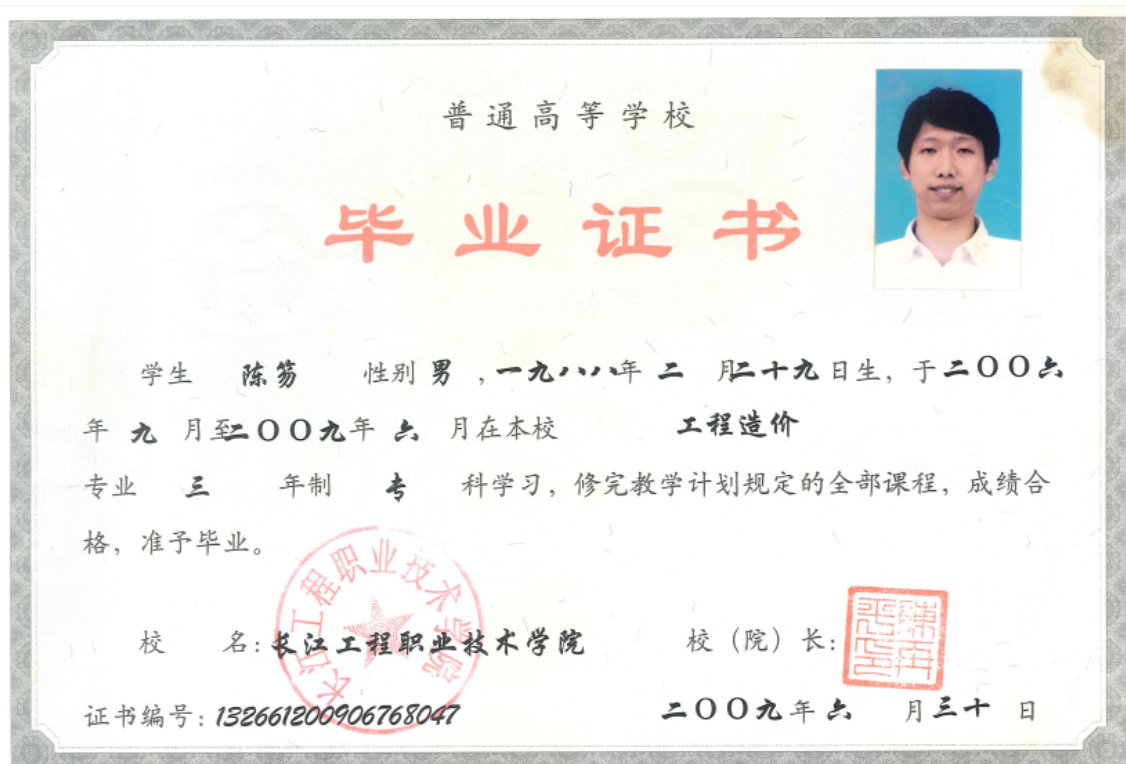 普通高等学校
毕业证书
学生 陈笏 性别 男 ,一九八八年 二 月二十九日生，于二〇〇六
年 九 月至二〇〇九年 六 月在本校 工程造价
专业 三 年制 专 科学习，修完教学计划规定的全部课程，成绩合
格，准予毕业。
长江工程职业技术学院
校 名：长江工程职业技术学院 校（院）长：
证书编号：132661200906768047 二〇〇九年 六 月三十 日